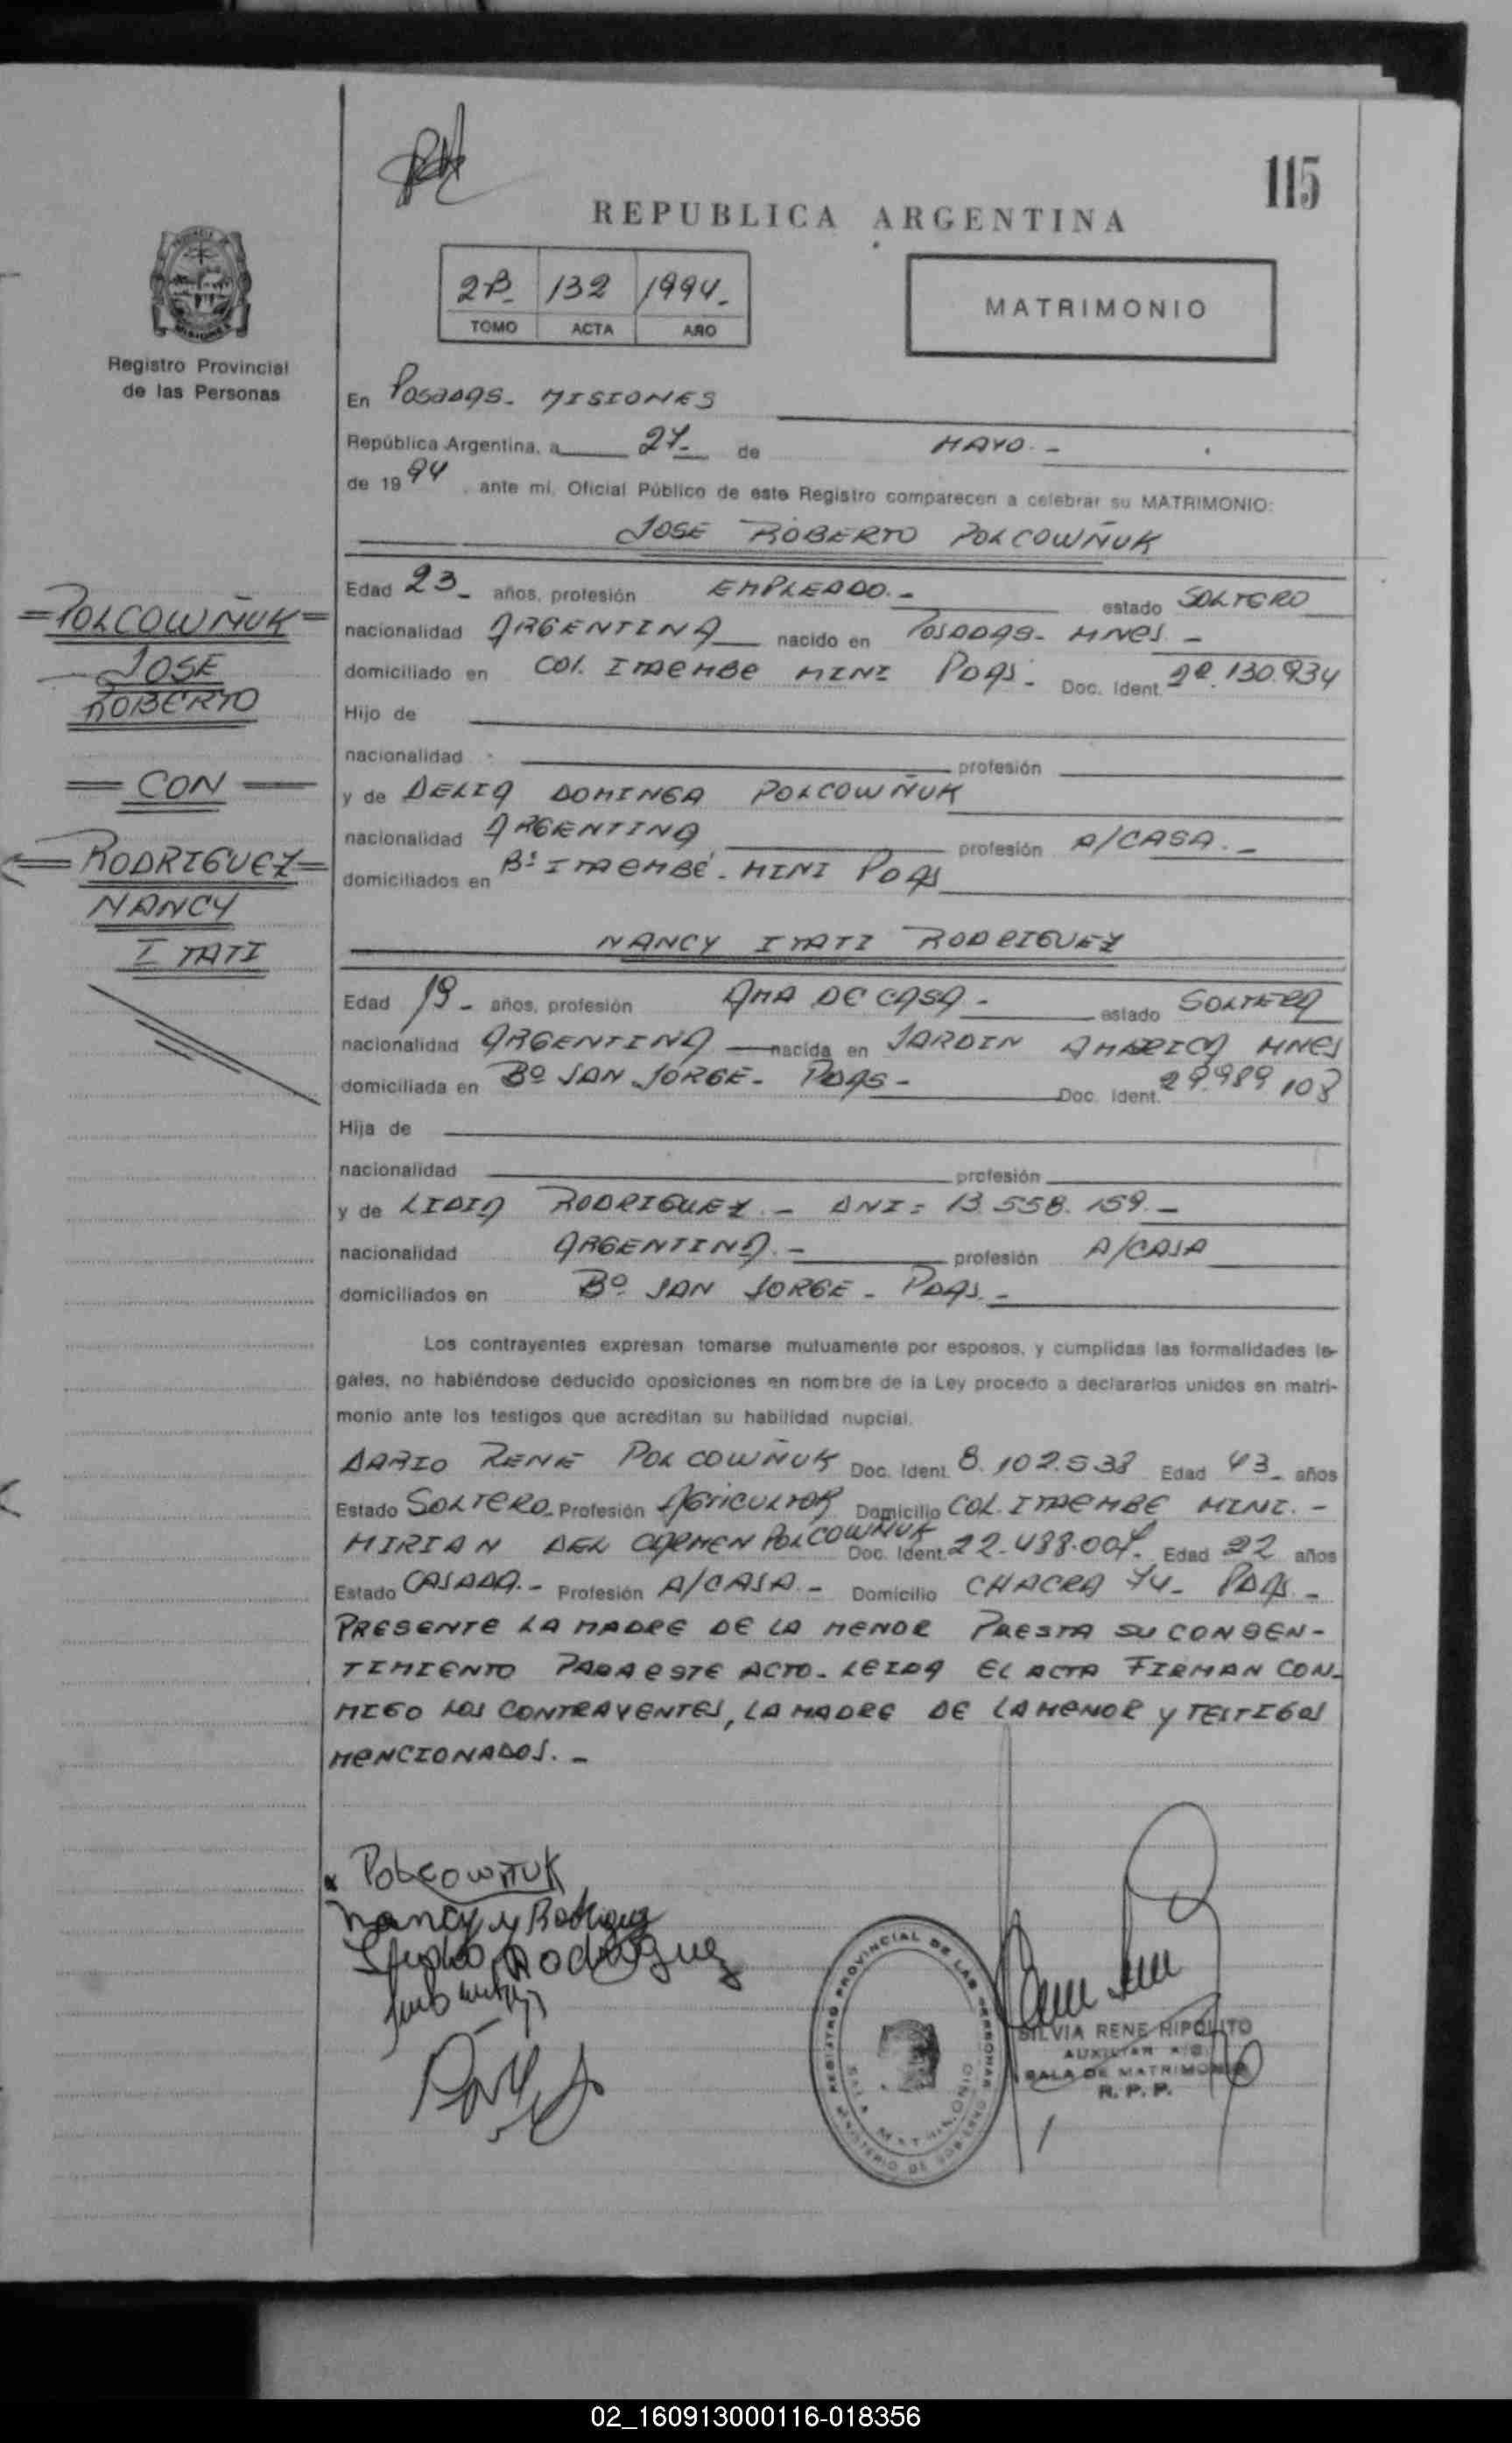 115
REPUBLICA ARGENTINA
2B- 132 1994.-
TOMO ACTA AÑO
MATRIMONIO
Registro Provincial
de las Personas
En POSADAS - MISIONES
República Argentina, a 27- de MAYO.-
de 1994, ante mí, Oficial Público de este Registro comparecen a celebrar su MATRIMONIO:
JOSE ROBERTO POLCOWÑUK
=POLCOWÑUK=
JOSE
ROBERTO
= CON =
=RODRIGUEZ=
NANCY
ITATI
Edad 23- años, profesión EMPLEADO.- estado SOLTERO
nacionalidad ARGENTINA nacido en POSADAS- MNES.-
domiciliado en COL. ITAEMBE MINI PDAS.- Doc. Ident. 130.934
Hijo de
nacionalidad profesión
y de DELIA DOMINGA POLCOWÑUK
nacionalidad ARGENTINA profesión A/CASA.-
domiciliados en Bº ITAEMBÉ - MINI PDAS
NANCY ITATI RODRIGUEZ
Edad 19- años, profesión AMA DE CASA- estado SOLTERA
nacionalidad ARGENTINA nacida en JARDIN AMERICA MNES
domiciliada en Bº SAN JORGE- PDAS- Doc. Ident. 989.108
Hija de
nacionalidad profesión
y de LIDIA RODRIGUEZ.- DNI= 13.558.159.-
nacionalidad ARGENTINA.- profesión A/CASA
domiciliados en Bº SAN JORGE - PDAS.-
Los contrayentes expresan tomarse mutuamente por esposos, y cumplidas las formalidades le-
gales, no habiéndose deducido oposiciones en nombre de la Ley procedo a declararlos unidos en matri-
monio ante los testigos que acreditan su habilidad nupcial.
DARIO RENE POLCOWÑUK Doc. Ident. 8.102.538 Edad 43- años
Estado SOLTERO- Profesión AGRICULTOR Domicilio COL. ITAEMBE MINI.-
MIRIAN DEL CARMEN POLCOWÑUK Doc. Ident. Edad 22 años
Estado CASADA.- Profesión A/CASA.- Domicilio CHACRA 74- PDAS.-
PRESENTE LA MADRE DE LA MENOR PRESTA SU CONSEN-
TIMIENTO PARA ESTE ACTO- LEIDA EL ACTA FIRMAN CON-
MIGO LOS CONTRAYENTES, LA MADRE DE LA MENOR Y TESTIGOS
MENCIONADOS.-
Polcowñuk
Nancy y Rodriguez
Rodriguez
REGISTRO PROVINCIAL DE LAS PERSONAS
SALA MATRIMONIO
MINISTERIO DE GOBIERNO
SILVIA RENE HIPOLITO
AUXILIAR
SALA DE MATRIMONIO
R. P. P.
02_160913000116-018356